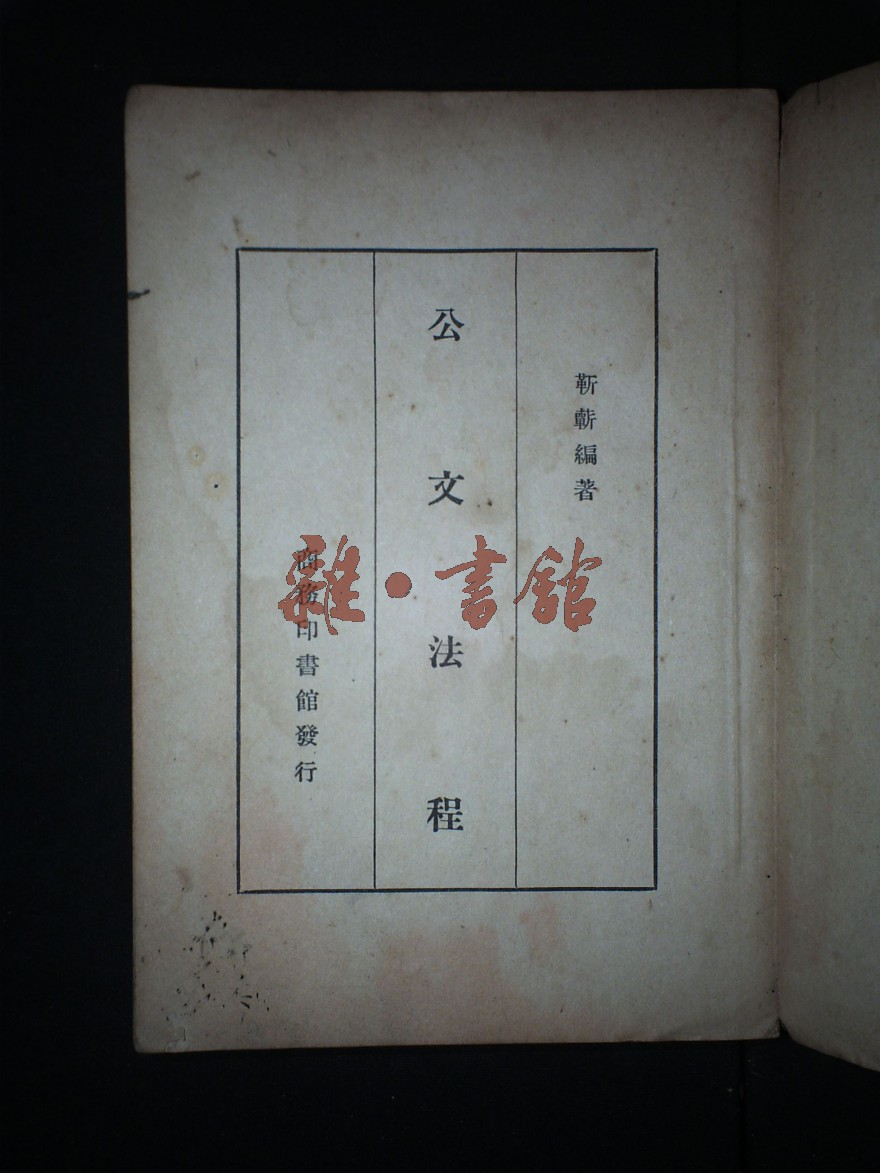 靳蘄編著
公文法程
商務印書館發行
雜·書館